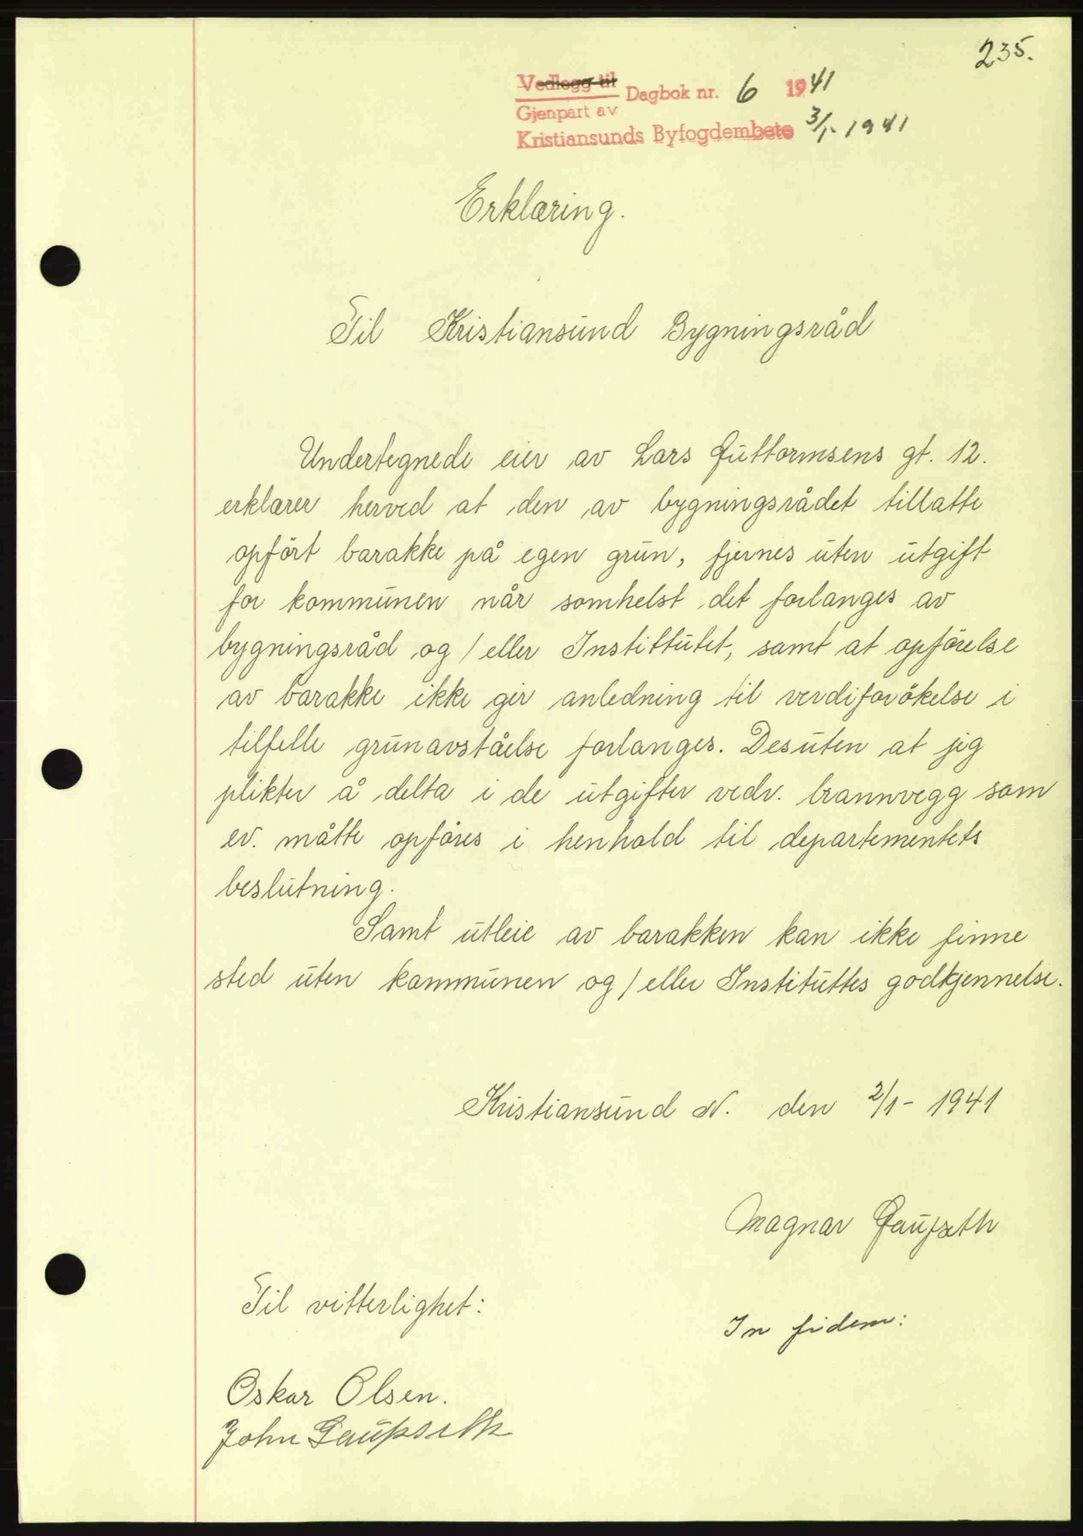 235.
Vedlegg til
Gjenpart av
Dagbok nr. 6 1941
Kristiansunds Byfogdembete 3/1-1941
Erklæring.
Til Kristiansund Bygningsråd
Undertegnede eier av Lars Guttormsens gt. 12.
erklærer herved at den av bygningsrådet tillatte
opfört barakke på egen grun, fjernes uten utgift
for kommunen når somhelst det forlanges av
bygningsråd og / eller Instittutet, samt at opförelse
av barakke ikke gir anledning til verdiforökelse i
tilfelle grunavståelse forlanges. Desuten at jeg
plikter å delta i de utgifter vedr. brannvegg som
ev. måtte opföres i henhold til departementets
beslutning.
Samt utleie av barakken kan ikke finne
sted uten kommunen og / eller Instituttes godkjennelse.
Kristiansund N. den 2/1- 1941
Magnar Gaupseth
Til vitterlighet:
In fidem:
Oskar Olsen.
John Gaupseth